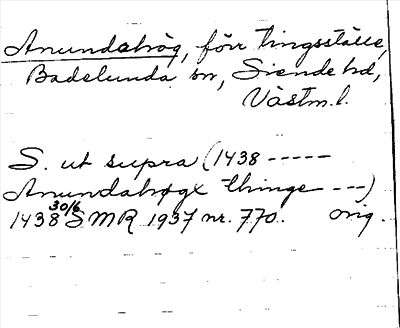 Anundahög, förr tingsställe,
Badelunda sn, Siende hd,
Västm. l.
S. ut supra (1438 -----
Anundahøgx thinge ---)
1438 30/6 SMR 1937 nr. 770. orig.